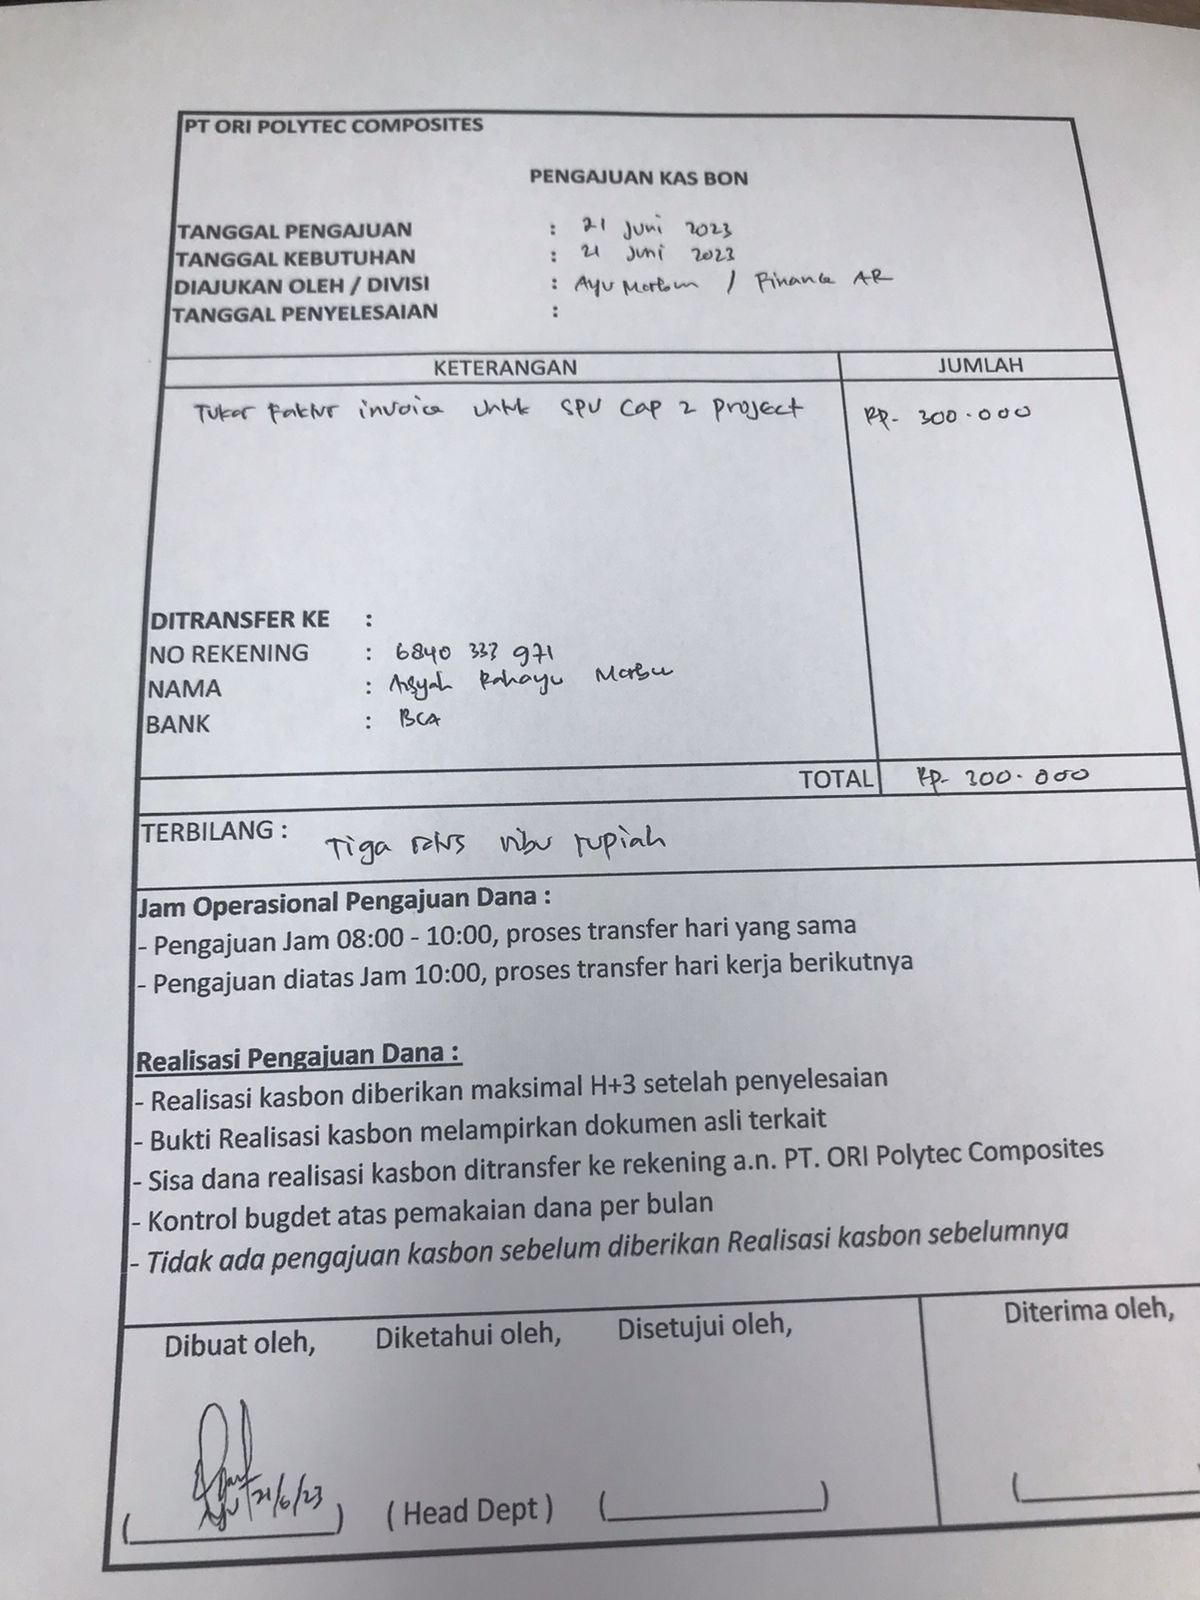 PT ORI POLYTEC COMPOSITES
PENGAJUAN KAS BON
TANGGAL PENGAJUAN : 21 Juni 2023
TANGGAL KEBUTUHAN : 21 Juni 2023
DIAJUKAN OLEH / DIVISI : Ayu / Finance AR
TANGGAL PENYELESAIAN :
KETERANGAN JUMLAH
Tukar Faktur invoice untuk SPU Cap 2 Project Rp. 300.000
DITRANSFER KE :
NO REKENING : 6840 333 971
NAMA : Rahayu
BANK : BCA
TOTAL Rp. 300.000
TERBILANG : Tiga ratus ribu rupiah
Jam Operasional Pengajuan Dana :
- Pengajuan Jam 08:00 - 10:00, proses transfer hari yang sama
- Pengajuan diatas Jam 10:00, proses transfer hari kerja berikutnya
Realisasi Pengajuan Dana :
- Realisasi kasbon diberikan maksimal H+3 setelah penyelesaian
- Bukti Realisasi kasbon melampirkan dokumen asli terkait
- Sisa dana realisasi kasbon ditransfer ke rekening a.n. PT. ORI Polytec Composites
- Kontrol bugdet atas pemakaian dana per bulan
- Tidak ada pengajuan kasbon sebelum diberikan Realisasi kasbon sebelumnya
Dibuat oleh, Diketahui oleh, Disetujui oleh, Diterima oleh,
Ayu 21/6/23
( Head Dept )